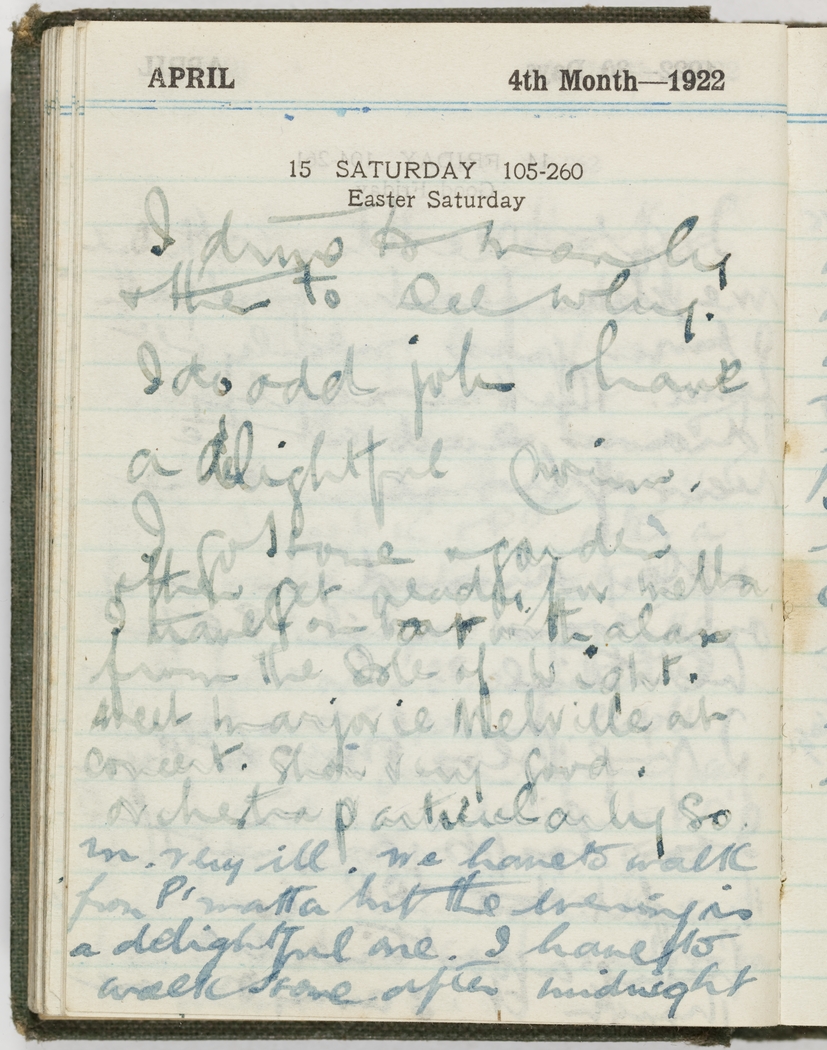 APRIL 4th Month—1922
15 SATURDAY 105-260
Easter Saturday
I drive to Manly
& then to Dee Why.
I do odd job & have
a delightful swim.
I go home & garden
after get ready for Mella
I travel on boat with a lass
from the Isle of Wight.
meet Marjorie Melville at
concert. Show very good.
orchestra particularly so.
M. very ill. We have to walk
from P'matta but the evening is
a delightful one. I have to
walk home after midnight